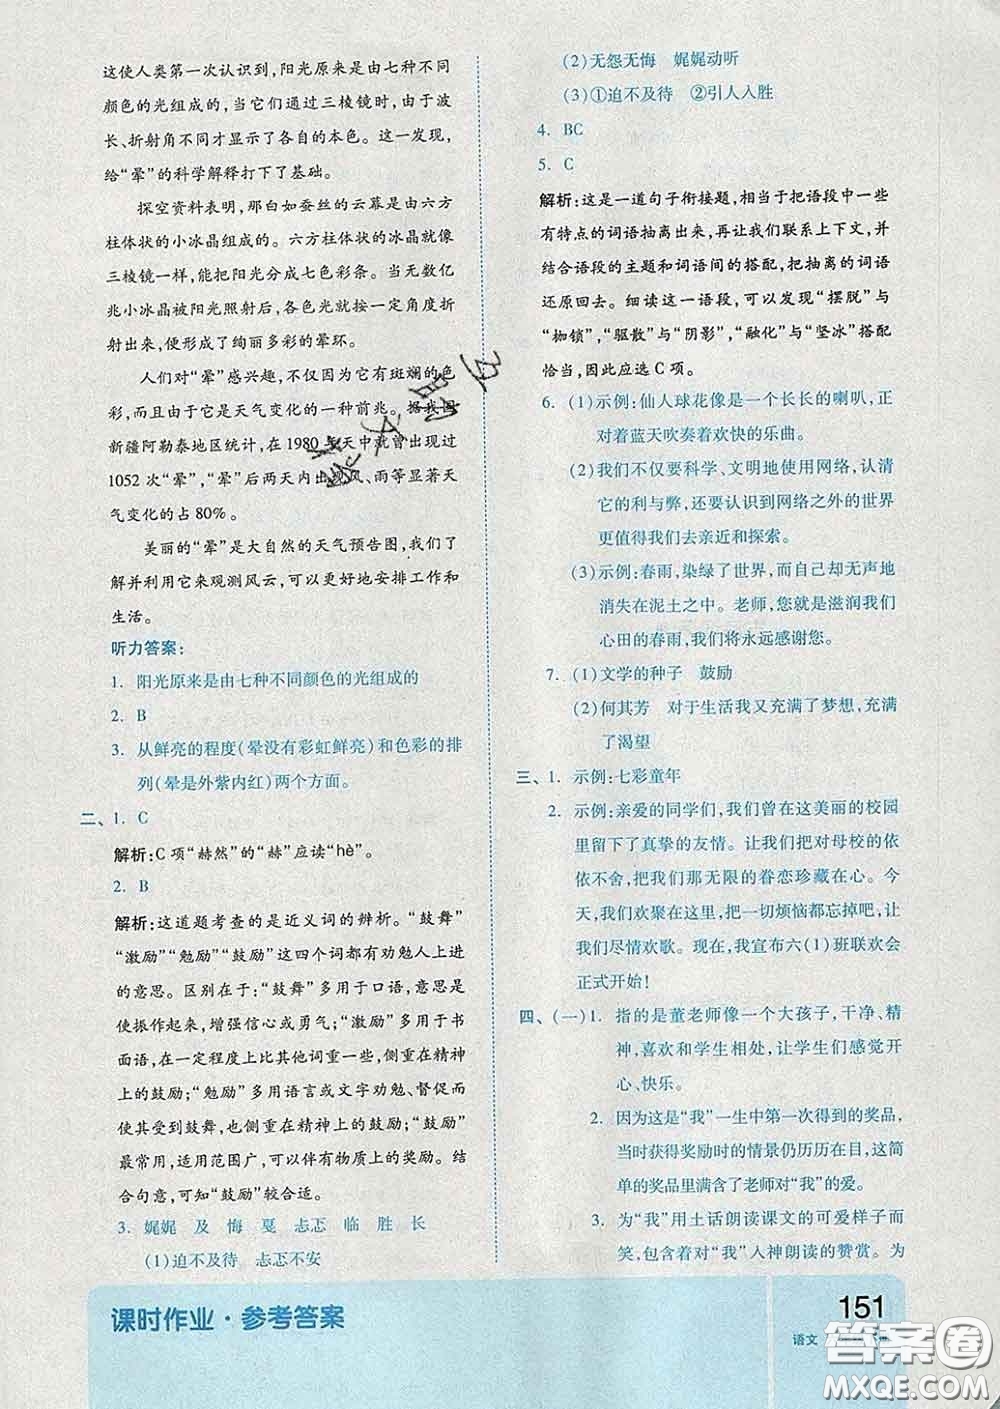 这使人类第一次认识到,阳光原来是由七种不同
颜色的光组成的,当它们通过三棱镜时,由于波
长、折射角不同才显示了各自的本色。这一发现,
给“晕”的科学解释打下了基础。
探空资料表明,那白如蚕丝的云幕是由六方
柱体状的小冰晶组成的。六方柱体状的冰晶就像
三棱镜一样,能把阳光分成七色彩条。当无数亿
兆小冰晶被阳光照射后,各色光就按一定角度折
射出来,便形成了绚丽多彩的晕环。
人们对“晕”感兴趣,不仅因为它有斑斓的色
彩,而且由于它是天气变化的一种前兆。据我国
新疆阿勒泰地区统计,在1980年天中就曾出现过
1052次“晕”,“晕”后两天内出现风、雨等显著天
气变化的占80%。
美丽的“晕”是大自然的天气预告图,我们了
解并利用它来观测风云,可以更好地安排工作和
生活。
听力答案:
1. 阳光原来是由七种不同颜色的光组成的
2. B
3. 从鲜亮的程度(晕没有彩虹鲜亮)和色彩的排
列(晕是外紫内红)两个方面。
二、1. C
解析:C项“赫然”的“赫”应读“hè”。
2. B
解析:这道题考查的是近义词的辨析。“鼓舞”
“激励”“勉励”“鼓励”这四个词都有劝勉人上进
的意思。区别在于:“鼓舞”多用于口语,意思是
使振作起来,增强信心或勇气;“激励”多用于书
面语,在一定程度上比其他词重一些,侧重在精神
上的鼓励;“勉励”多用语言或文字劝勉、督促而使
其受到鼓舞,也侧重在精神上的鼓励;“鼓励”
最常用,适用范围广,可以伴有物质上的奖励。结
合句意,可知“鼓励”较合适。
3. 娓娓 及 悔 戛 忐忑 临 胜 长
(1)迫不及待 忐忑不安
(2)无怨无悔 娓娓动听
(3)①迫不及待 ②引人入胜
4. BC
5. C
解析:这是一道句子衔接题,相当于把语段中一些
有特点的词语抽离出来,再让我们联系上下文,并
结合语段的主题和词语间的搭配,把抽离的词语
还原回去。细读这一语段,可以发现“摆脱”与
“枷锁”,“驱散”与“阴影”,“融化”与“坚冰”搭配
恰当,因此应选C项。
6. (1)示例:仙人球花像是一个长长的喇叭,正
对着蓝天吹奏着欢快的乐曲。
(2)我们不仅要科学、文明地使用网络,认清
它的利与弊,还要认识到网络之外的世界
更值得我们去亲近和探索。
(3)示例:春雨,染绿了世界,而自己却无声地
消失在泥土之中。老师,您就是滋润我们
心田的春雨,我们将永远感谢您。
7. (1)文学的种子 鼓励
(2)何其芳 对于生活我又充满了梦想,充满
了渴望
三、1. 示例:七彩童年
2. 示例:亲爱的同学们,我们曾在这美丽的校园
里留下了真挚的友情。让我们把对母校的依
依不舍,把那无限的眷恋珍藏在心。今
天,我们欢聚在这里,把一切烦恼都忘掉吧,让
我们尽情欢歌。现在,我宣布六(1)班联欢会
正式开始!
四、(一)1. 指的是董老师像一个大孩子,干净、精
神,喜欢和学生相处,让学生们感觉开
心、快乐。
2. 因为这是“我”一生中第一次得到的奖品,
当时获得奖励时的情景仍历历在目,这简
单的奖品里满含了老师对“我”的爱。
3. 为“我”用土话朗读课文的可爱样子而
笑,包含着对“我”入神朗读的赞赏。为
课时作业·参考答案
151
语文
答案圈
MXQE.COM